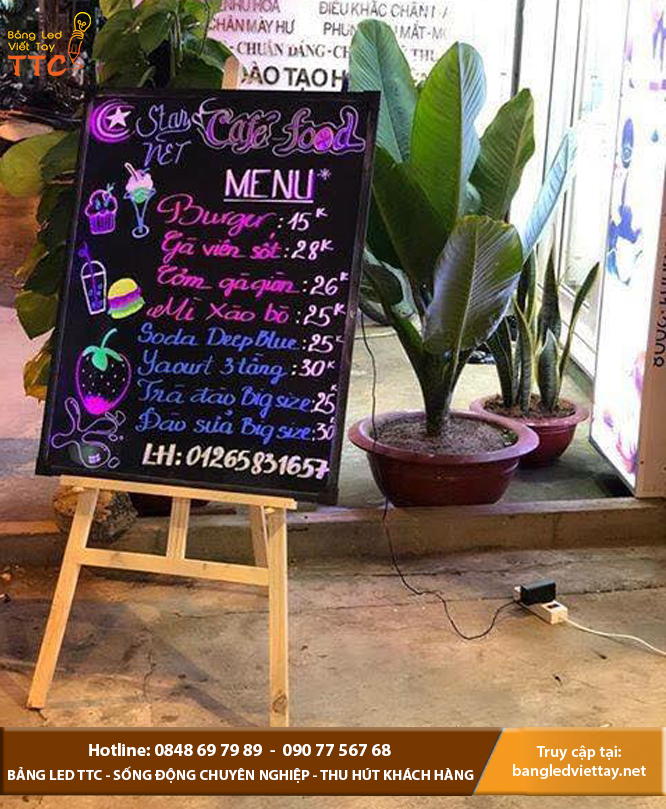 Bảng Led
Viết Tay
TTC
ĐIÊU KHẮC CHÂN
CHÂN MÀY HƯ
CHUẨN DÁNG
ĐÀO TẠO
Star
NET
Café food
MENU*
Burger: 15K
Gà viên sốt: 28K
Cơm gà giòn: 26K
Mì Xào bò: 25K
Soda Deep Blue: 25K
Yaourt 3 tầng: 30K
Trà đào Big size: 25K
Đào sữa Big size: 30K
LH: 01265831657
Hotline: 0848 69 79 89 - 090 77 567 68
BẢNG LED TTC - SỐNG ĐỘNG CHUYÊN NGHIỆP - THU HÚT KHÁCH HÀNG
Truy cập tại:
bangledviettay.net